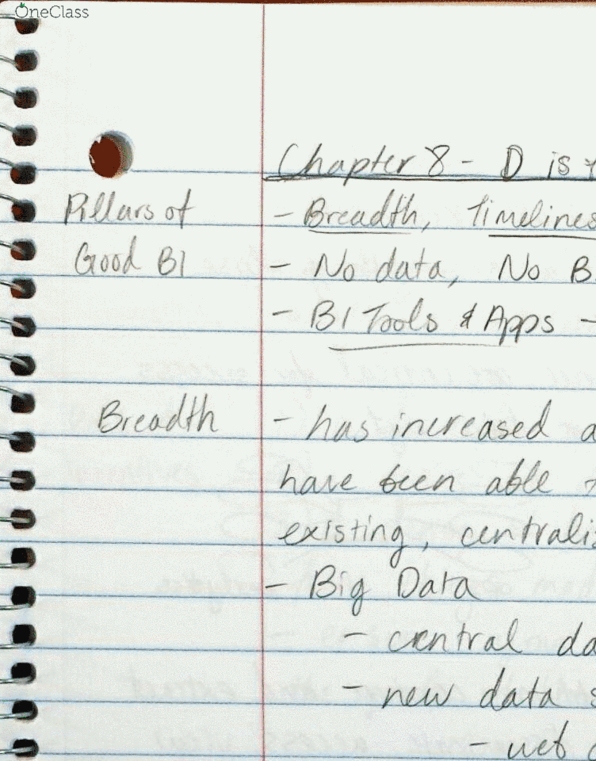 OneClass
Chapter 8 - D is
Pillars of - Breadth, Timelines
Good BI - No data, No B
- BI Tools & Apps -
Breadth - has increased a
have been able
existing, centrali
- Big Data
- central da
- new data s
- web